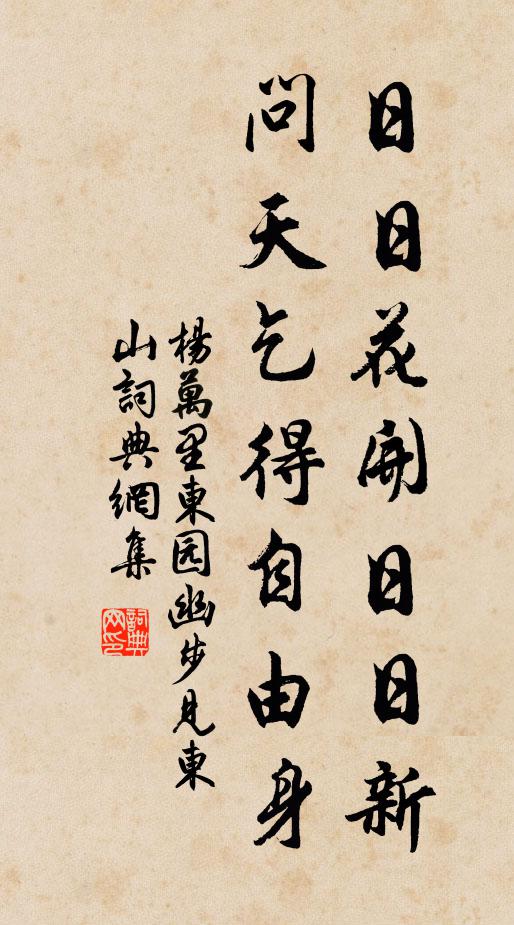 日日花開日日新
問天乞得自由身
楊萬里東园幽步見東
山詞典網集
詞典网印